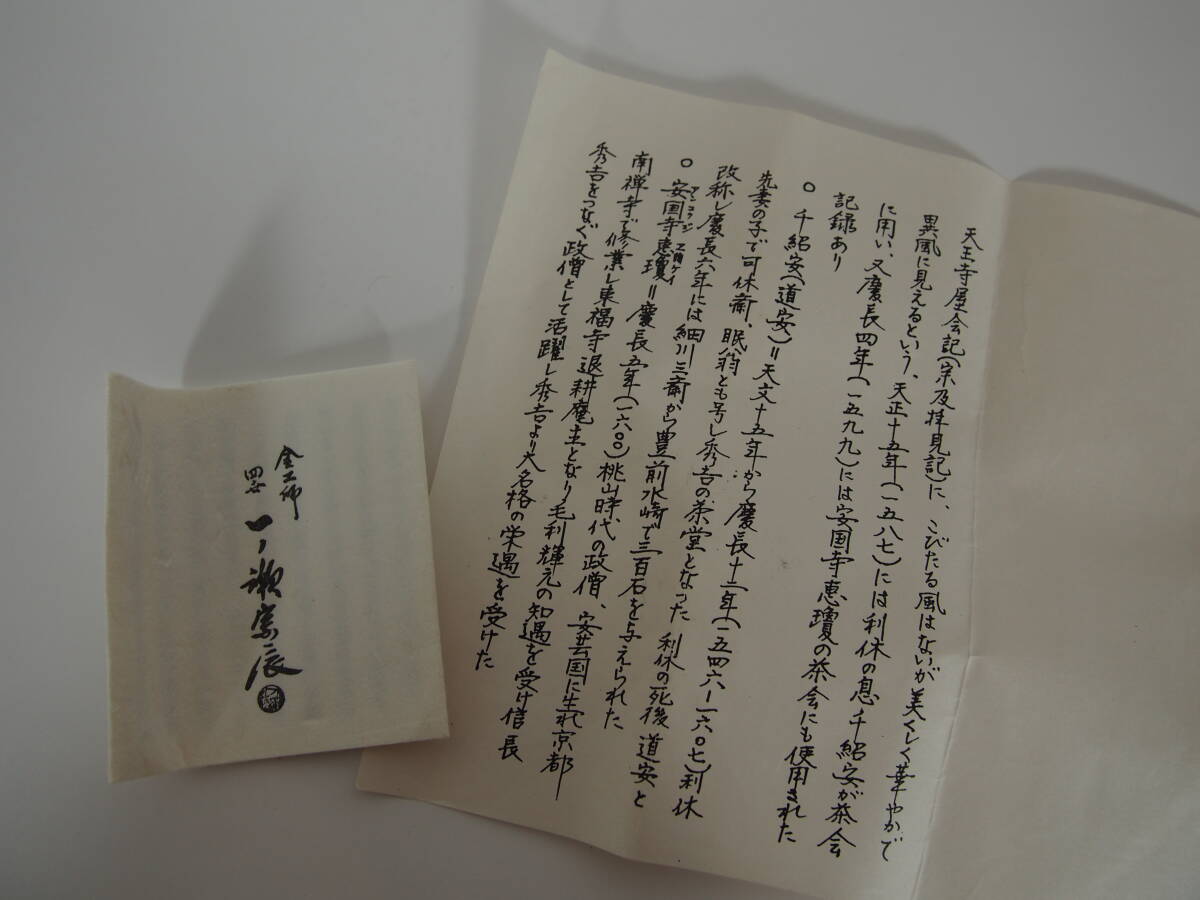 天王寺屋会記(宗及拝見記)に、こびたる風はないが美くしく華やかで
異風に見えるという、天正十五年(一五八七)には利休の息千紹安が茶会
に用い、又慶長四年(一五九九)には安国寺恵瓊の茶会にも使用された
記録あり
○ 千紹安(道安)=天文十五年から慶長十二年(一五四六―一六〇七)利休
先妻の子で可休斎、眠翁とも号し秀吉の茶堂となった 利休の死後道安と
改称し慶長六年には細川三斎から豊前水崎で三百石を与えられた
○ 安国寺恵瓊=慶長五年(一六〇〇)桃山時代の政僧、安芸国に生れ京都
アンコクジ エイケイ
南禅寺で修業し東福寺退耕庵主となり毛利輝元の知遇を受け信長
秀吉をつなぐ政僧として活躍し秀吉より大名格の栄遇を受けた
金工師
四代
一ノ瀬宗辰